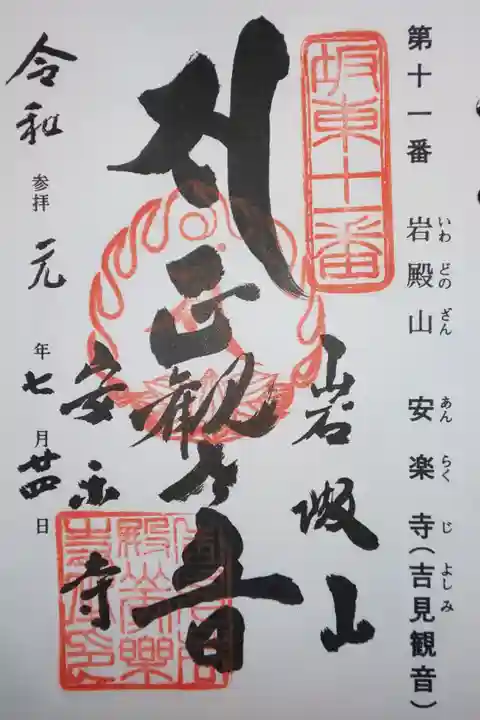 第十一番 岩殿山 安楽寺(吉見観音)
いわ どの ざん あん らく じ よしみ
坂東十一番
岩殿山
正観音
安楽寺
令和 参拝 元 年 七 月 廿四 日